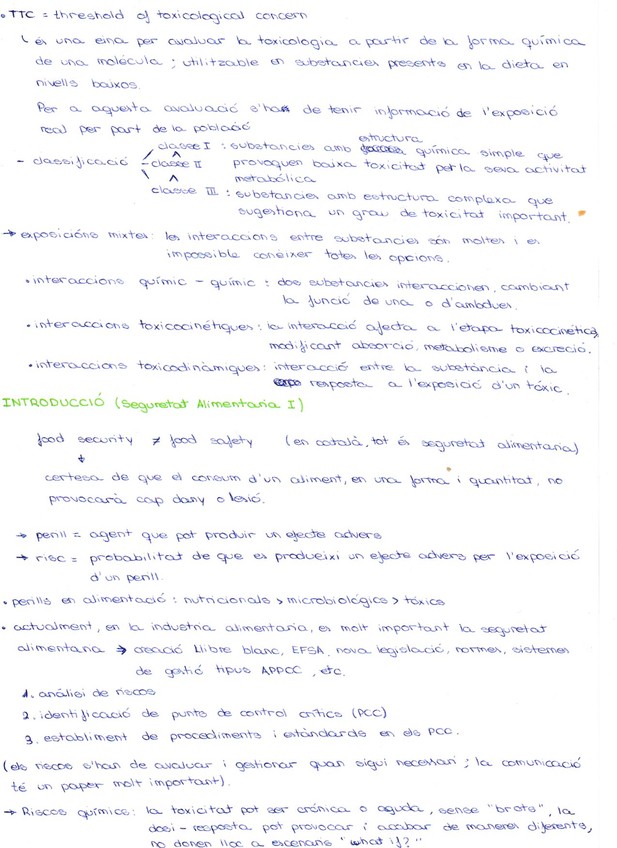 • TTC = threshold of toxicological concern
↳ és una eina per avaluar la toxicologia a partir de la forma química
de una molècula ; utilitzable en substancies presents en la dieta en
nivells baixos.
Per a aquesta avaluació s'han de tenir informació de l'exposició
real per part de la població
- classificació
classe I : substancies amb estructura química simple que
classe II provoquen baixa toxicitat per la seva activitat
metabòlica
classe III : substancies amb estructura complexa que
sugestiona un grau de toxicitat important.
→ exposicions mixtes: les interaccions entre substancies són moltes i es
impossible coneixer totes les opcions.
• interaccions químic - químic : dos substancies interaccionen, cambiant
la funció de una o d'ambdues.
• interaccions toxicocinétiques: la interacció afecta a l'etapa toxicocinética,
modificant absorció, metabolisme o excreció.
• interaccions toxicodinàmiques: interacció entre la substància i la
resposta a l'exposició d'un tòxic.
INTRODUCCIÓ (Seguretat Alimentaria I)
food security ≠ food safety (en català, tot és seguretat alimentaria)
↓
certesa de que el consum d'un aliment, en una forma i quantitat, no
provocarà cap dany o lesió.
→ perill = agent que pot produir un efecte advers
→ risc = probabilitat de que es produeixi un efecte advers per l'exposició
d'un perill.
• perills en alimentació : nutricionals > microbiològics > tòxics
• actualment, en la industria alimentaria, es molt important la seguretat
alimentaria → creació Llibre blanc, EFSA, nova legislació, normes, sistemes
de gestió tipus APPCC, etc.
1. anàlisi de riscos
2. identificació de punts de control crítics (PCC)
3. establiment de procediments i estàndards en els PCC.
(els riscos s'han de avaluar i gestionar quan sigui necessari ; la comunicació
té un paper molt important).
→ Riscos químics: la toxicitat pot ser crónica o aguda, sense "brots", la
dosi - resposta pot provocar i acabar de maneres diferents,
no donen lloc a escenaris "what if?"